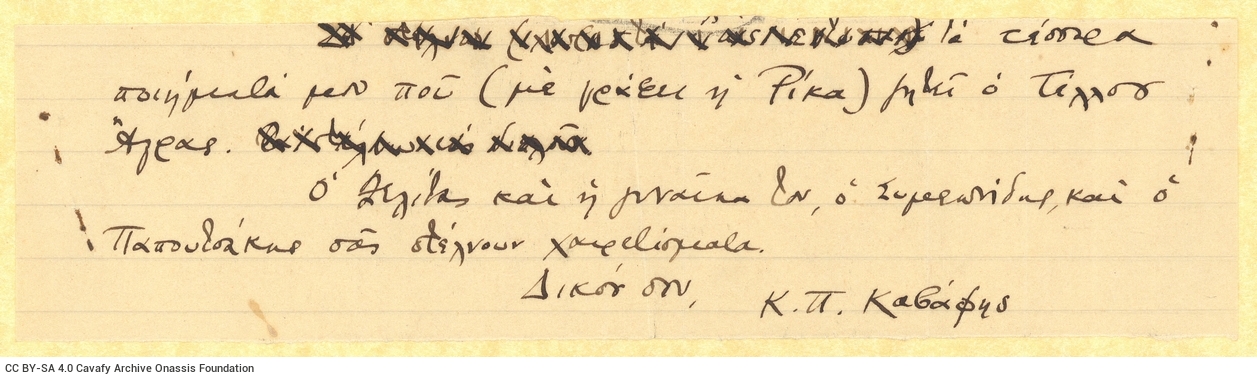 τὰ τέσσερα
ποιήματά μου ποῦ (μὲ γράφει ἡ Ρίκα) ζητεῖ ὁ Τέλλος
Ἄγρας.
Ὁ Ζελίτας καὶ ἡ γυναῖκα του, ὁ Συμεωνίδης, καὶ ὁ
Παπουτσάκης σᾶς στέλνουν χαιρετίσματα.
Δικός σου,
Κ. Π. Καβάφης
CC BY-SA 4.0 Cavafy Archive Onassis Foundation